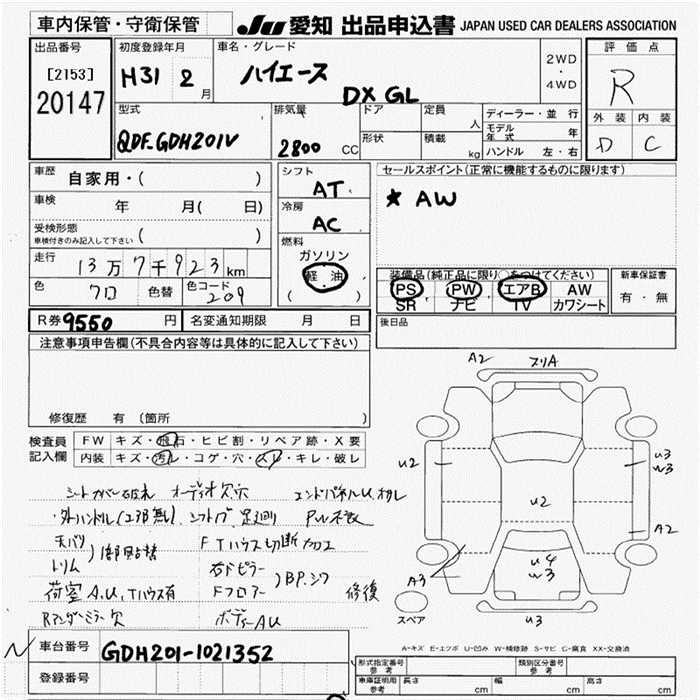 車内保管・守衛保管
JU 愛知 出品申込書 JAPAN USED CAR DEALERS ASSOCIATION
出品番号
[2153]
20147
初度登録年月
H31 2 月
車名・グレード
ハイエース
DX GL
2WD
・
4WD
評価点
R
外装 内装
D C
型式
QDF-GDH201V
排気量
2800 CC
ドア
形状
定員
人
積載
kg
ディーラー・並行
モデル年式 年
ハンドル 左・右
車歴 自家用・( )
車検 年 月( 日)
受検形態
車検付きのみ記入して下さい ( )
走行 13万7千923km
色 クロ 色替 色コード 209
シフト
AT
冷房
AC
燃料
ガソリン
軽油
( )
セールスポイント(正常に機能するものに限ります)
★ AW
装備品(純正品に限り○をつけてください)
PS PW エアB AW
SR ナビ TV カワシート
新車保証書
有・無
R券 9550 円 名変通知期限 月 日
後日品
注意事項申告欄(不具合内容等は具体的に記入して下さい)
修復歴 有 (箇所 )
検査員記入欄
FW キズ・飛石・ヒビ割・リペア跡・X要
内装 キズ・汚レ・コゲ・穴・スレ・キレ・破レ
シートカバー破れ オーディオ欠穴 エンドパネルU、
・外ハンドル(エアロ無)、シフトノブ、足廻り
天バリ
トリム
)1部貼替 FTハウス切断加工
右Fピラー
Fフロアー
)BP、シワ 修復
荷室A.U、Tハウス有
Rアンダーミラー欠 ボディーAU
A2 フリA
U2
U3
W3
U2
A2
U4
W3
A3
U3
スペア
A-キズ E-エクボ U-凹み W-補修跡 S-サビ C-腐食 XX-交換済
車台番号 GDH201-1021352
登録番号
形式指定番号 参考
類別区分番号 参考
車庫証明用 参考 長さ cm 幅 cm 高さ cm